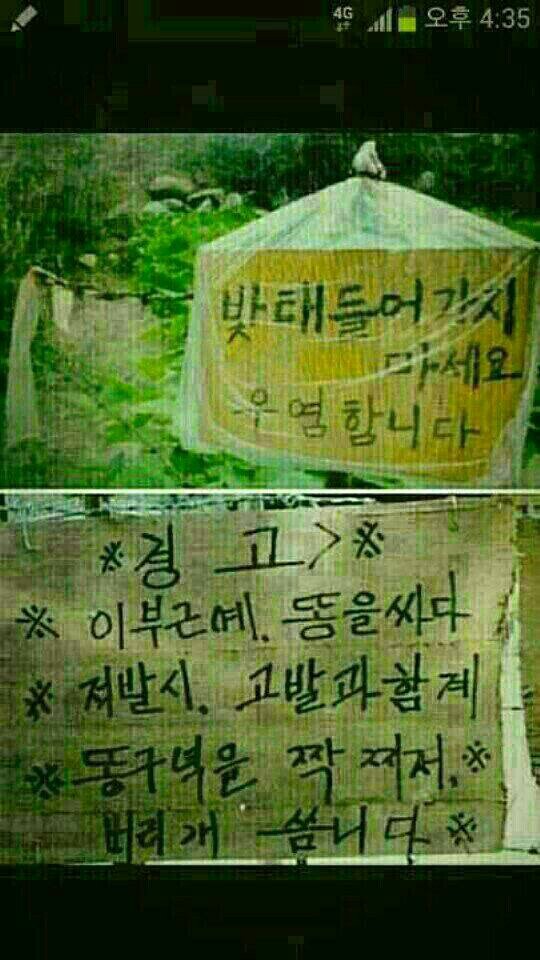 4G 오후 4:35
밧태들어가지
마세요
우염합니다
※경고>※
※이부근에.똥을싸다
※저발시.고발과함게
※똥구녁을 짝찌저.※
버리개 씀니다※